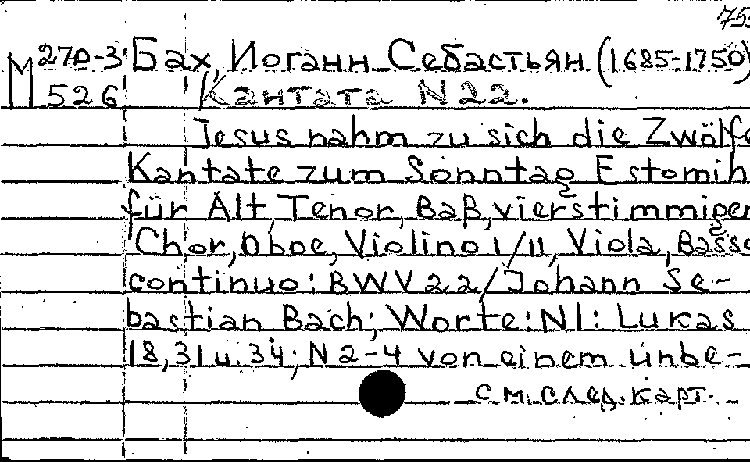 753
М 270-3 Бах, Иоганн Себастьян (1685-1750)
526 Кантата N 22.
Jesus nahm zu sich die Zwölfe
Kantate zum Sonntag Estomih
für Alt, Tenor, Baß, vierstimmigen
Chor, Oboe, Violino I/II, Viola, Basso
continuo: BWV 22/Johann Se-
bastian Bach; Worte: N1: Lukas
18, 31 u. 34; N 2-4 von einem unbe-
см. след. карт.